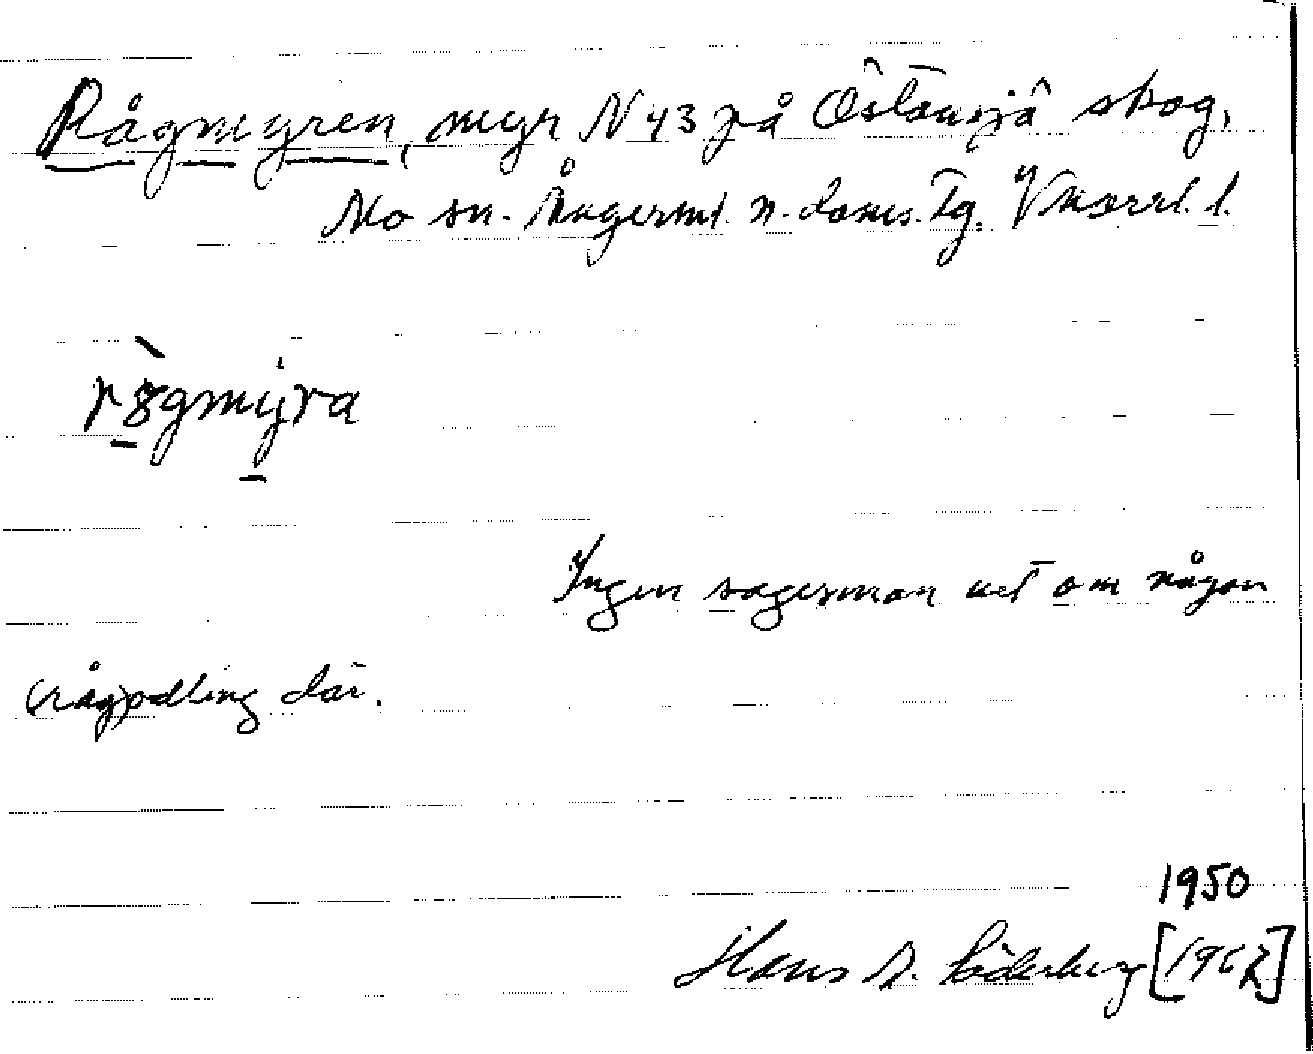 Rågmyren, myr N 43 på Östansjö skog,
Mo sn. Ångerml. n. doms. Tg. Vnorrl. l.
rågmyra
Ingen sagesman vet om någon
rågodling där.
1950
Hans A. Söderberg [1962]